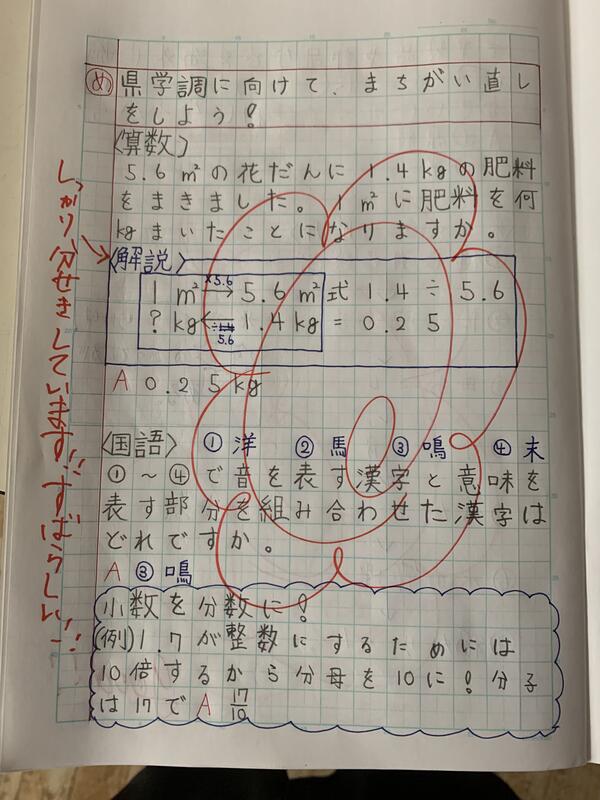 め 県学調に向けて、まちがい直し
をしよう!
〈算数〉
5.6㎡の花だんに1.4kgの肥料
をまきました。1㎡に肥料を何
kgまいたことになりますか。
〈解説〉
×5.6
1㎡→5.6㎡ 式1.4÷5.6
?kg←1.4kg =0.25
÷1.4
5.6
A 0.25kg
〈国語〉 ①洋 ②馬 ③鳴 ④末
①~④で音を表す漢字と意味を
表す部分を組み合わせた漢字は
どれですか。
A ③鳴
小数を分数に!
(例)1.7が整数にするためには
10倍するから分母を10に!分子
は17で A 17/10
しっかり分せきしています!!すばらしい!!